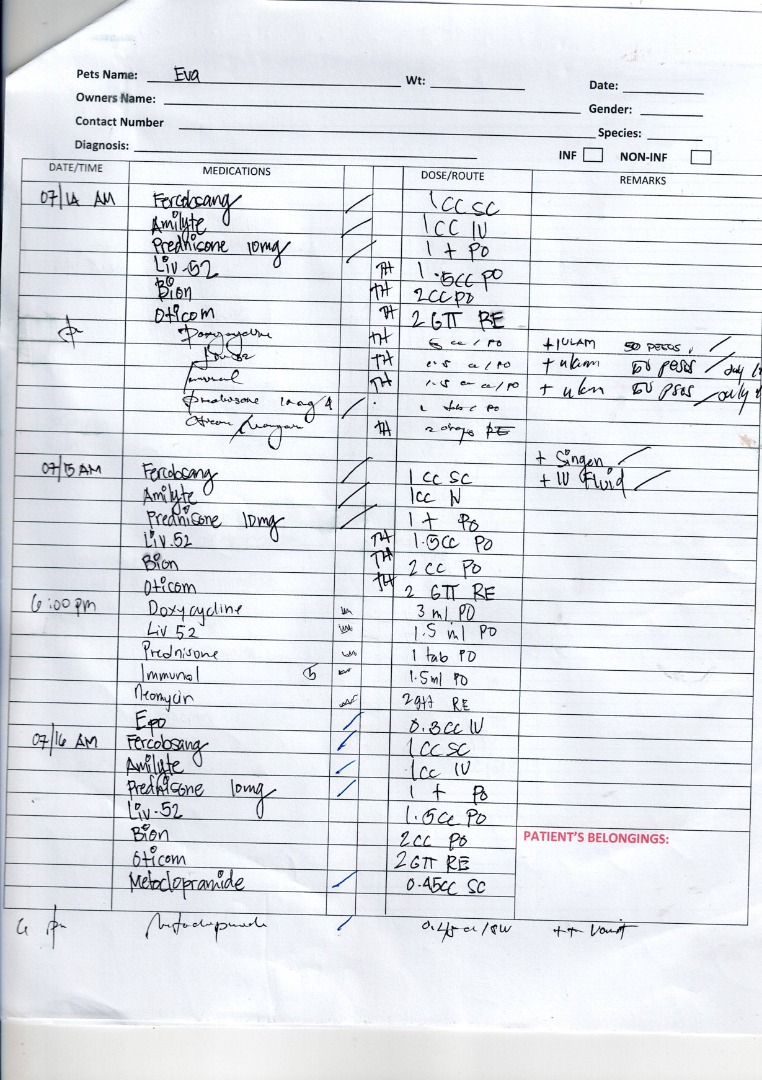 Pets Name: Eva Wt: Date:
Owners Name: Gender:
Contact Number Species:
Diagnosis: INF NON-INF
DATE/TIME MEDICATIONS DOSE/ROUTE REMARKS
07/14 AM Fercobsang 1CC SC
Amilyte 1CC IV
Prednisone 10mg 1 t PO
Liv-52 TH 1.5cc PO
Bion TH 2cc PO
Oticom TH 2 GTT RE
TH cc / PO + 1 ULAM 50 PESOS
TH 1.5 cc / PO + ulam 50 pesos / July
TH 1.5 cc / PO + 50 / July
PO
TH 2 drops RE
+ Singen
07/15 AM Fercobsang 1 CC SC + IV Fluid
Amilyte 1cc IV
Prednisone 10mg 1 t PO
Liv.52 TH 1.5cc PO
Bion TH 2 CC PO
Oticom TH 2 GTT RE
6:00 pm Doxycycline 3 ml PO
Liv 52 1.5 ml PO
Prednisone 1 tab PO
Immunol 1.5ml PO
Neomycin 2gtt RE
Epo 0.3cc IV
07/16 AM Fercobsang 1 CC SC
Amilyte 1cc IV
Prednisone 10mg 1 t PO
Liv-52 1.5cc PO
Bion 2cc PO PATIENT'S BELONGINGS:
Oticom 2 GTT RE
Metoclopramide 0.45cc SC
6 pm ++ Vomit